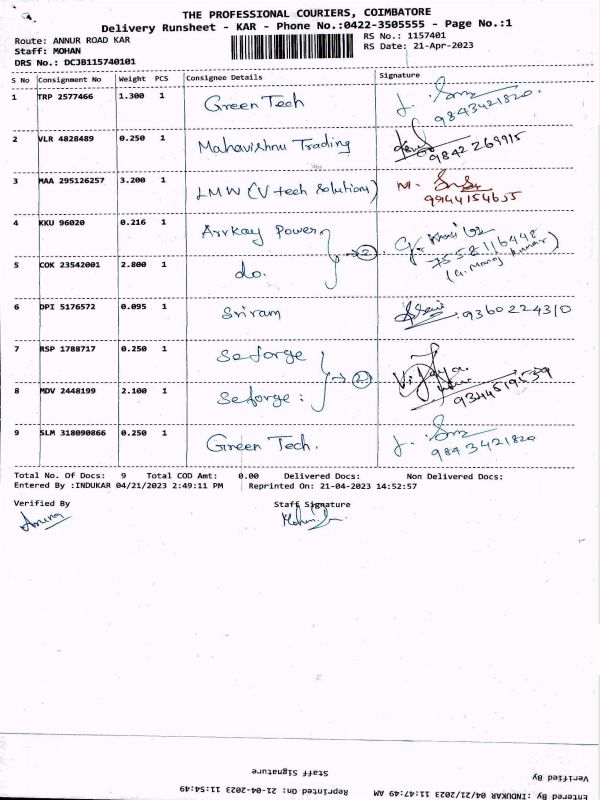 THE PROFESSIONAL COURIERS, COIMBATORE
Delivery Runsheet - KAR - Phone No.:0422-3505555 - Page No.:1
Route: ANNUR ROAD KAR
RS No.: 1157401
Staff: MOHAN
RS Date: 21-Apr-2023
DRS No.: DCJB115740101
S No Consignment No Weight PCS Consignee Details Signature
1 TRP 2577466 1.300 1 Green Tech
9843421820
2 VLR 4828489 0.250 1 Mahavishnu Trading
9842269915
3 MAA 295126257 3.200 1 LMW (V tech Solution) M.
9944154655
4 KKU 96020 0.216 1 Arrkay Power
2
7558116448
(G. Manoj Kumar)
5 COK 23542001 2.800 1 do.
6 DPI 5176572 0.095 1 Sriram 9360224310
7 RSP 1788717 0.250 1 Seforge
2
8 MDV 2448199 2.100 1 Seforge :
9344519539
9 SLM 318090866 0.250 1 Green Tech.
9843421820
Total No. Of Docs: 9 Total COD Amt: 0.00 Delivered Docs: Non Delivered Docs:
Entered By :INDUKAR 04/21/2023 2:49:11 PM Reprinted On: 21-04-2023 14:52:57
Verified By Staff Signature
Staff Signature Verified By
Entered By :INDUKAR 04/21/2023 11:47:49 AM Reprinted On: 21-04-2023 11:54:49